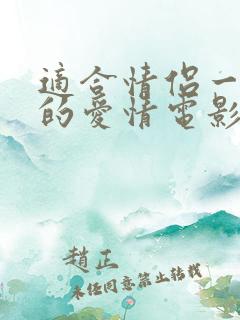 適合情侶一
的愛情電影
趙正
未經同意禁止轉載